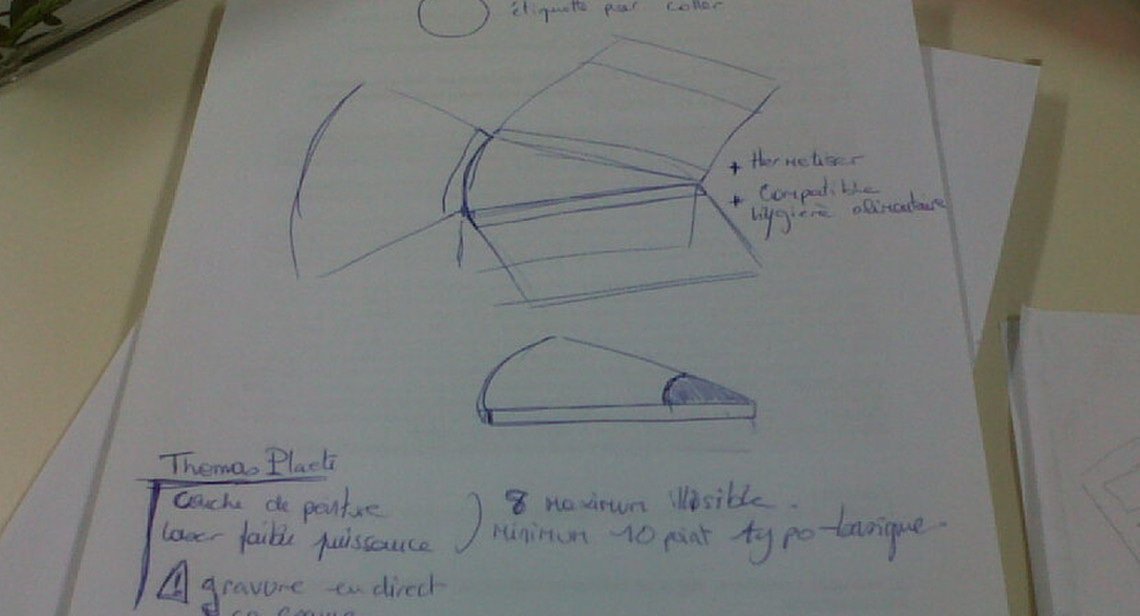 étiquette par coller
+ Hermetiser
+ Compatible
hygiène alimentaire
Thomas Plasti
Couche de peinture
laser faible puissance
8 maximum illisible.
minimum 10 point typo-basique.
⚠ gravure en direct